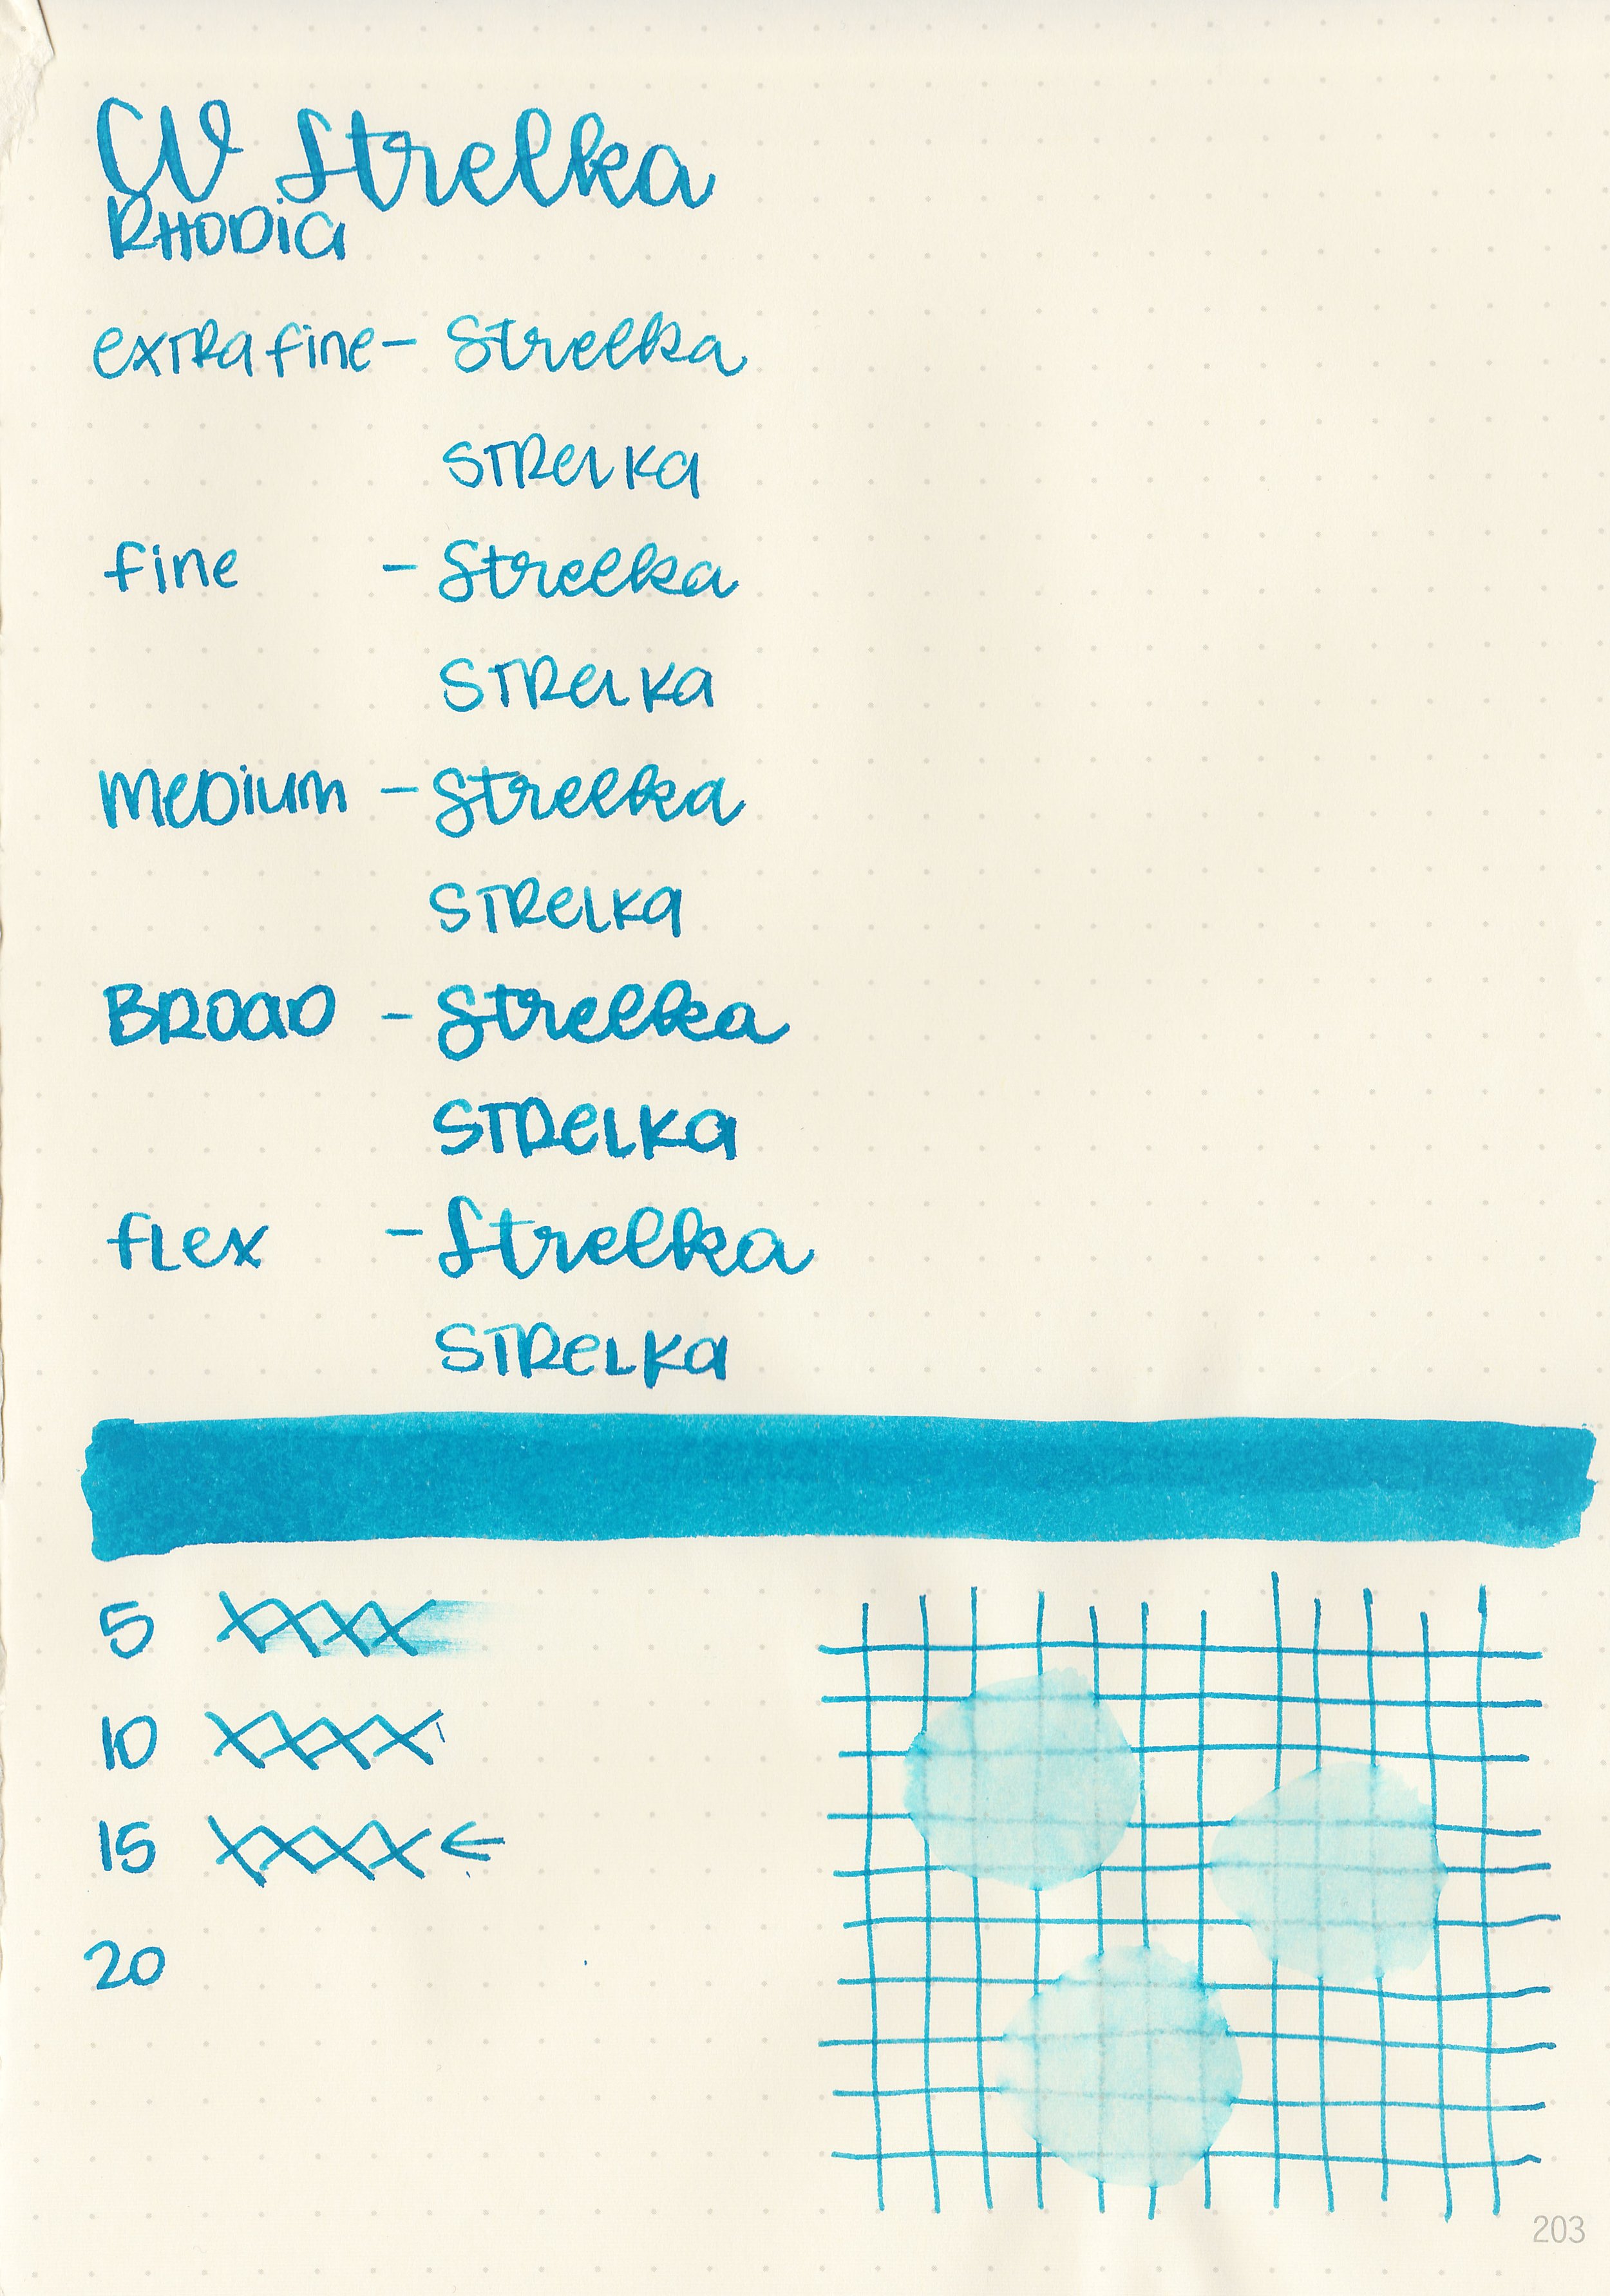 CV Strelka
RHODIA
extra fine - Strelka
STRELKA
fine - Strelka
STRELKA
Medium - Strelka
STRELKA
BROAD - Strelka
STRELKA
flex - Strelka
STRELKA
5 XXXX
10 XXXX
15 XXXX ←
20
203